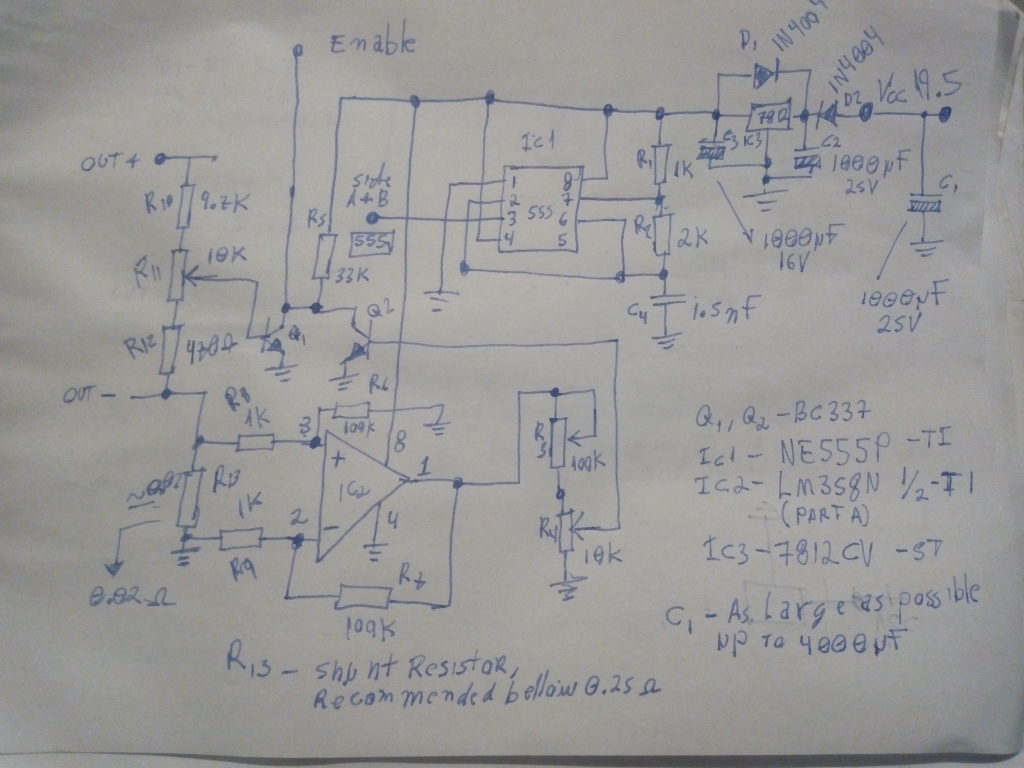 Enable
D1
1N4004
1N4004
D2
Vcc 19.5
OUT+
R10
9.7K
Ic1
1
2
3
4
555
8
7
6
5
R1
1K
C3
C2
1000µF
25V
C1
side
A+B
555
R5
33K
R2
2K
1000µF
16V
R11
10K
C4
1.5nF
1000µF
25V
R12
470Ω
Q1
Q2
OUT-
R8
1K
R6
100K
3
+
8
IC2
1
2
-
4
R3
100K
R4
10K
R13
R9
1K
0.02Ω
R7
100K
Q1, Q2 - BC337
Ic1 - NE555P - TI
IC2 - LM358N 1/2 - TI
(PART A)
IC3 - 7812CV - ST
C1 - As Large as possible
up to 4000µF
R13 - shunt Resistor,
Recommended bellow 0.25Ω